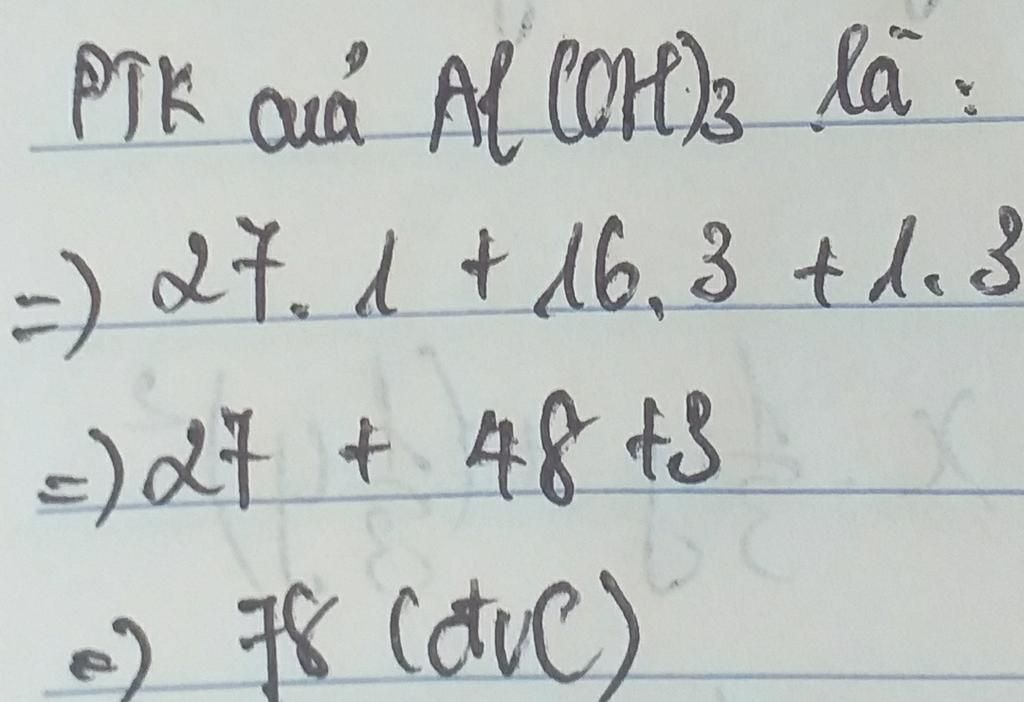 PTK của Al(OH)3 là :
=) 27. 1 + 16. 3 + 1. 3
=) 27 + 48 +3
=) 78 (đvC)